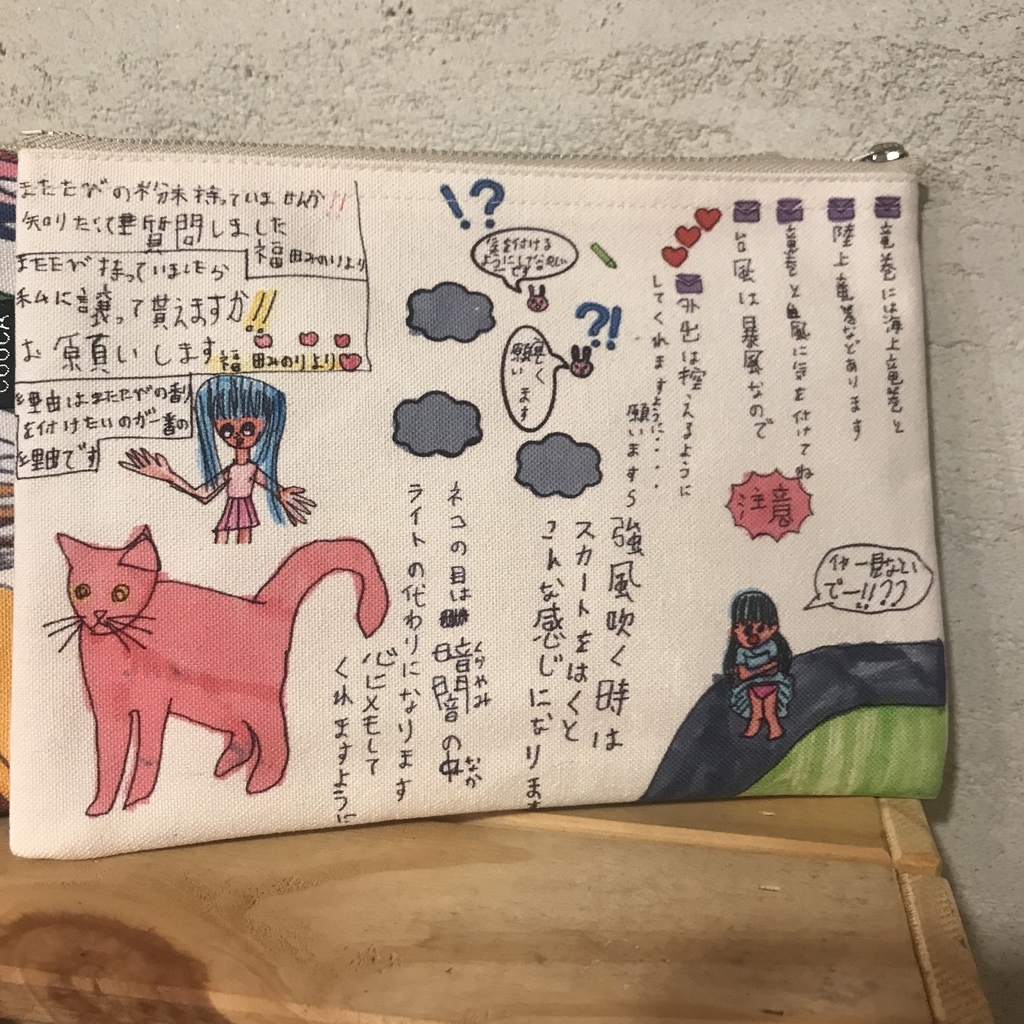 またたびの粉末持っていませんか!!
知りたくて質問しました
福田みのりより
またたび持っていましたら
私に譲って貰えますか!!
お願いします
福田みのりより
理由はまたたびの
を付けたいのが一番の
理由です
!?
気を付ける
ようにして下さい
です
?!
宜しく
願います
竜巻には海上竜巻と
陸上竜巻などあります
竜巻と台風に気を付けてね
台風は暴風なので
外出は控えるように
してくれますように・・・・
願いますら
注意
強風吹く時は
スカートをはくと
こんな感じになります
ネコの目は暗闇の中
くらやみ
なか
ライトの代わりになります
心にメモして
くれますように
見ないい
でー!!??